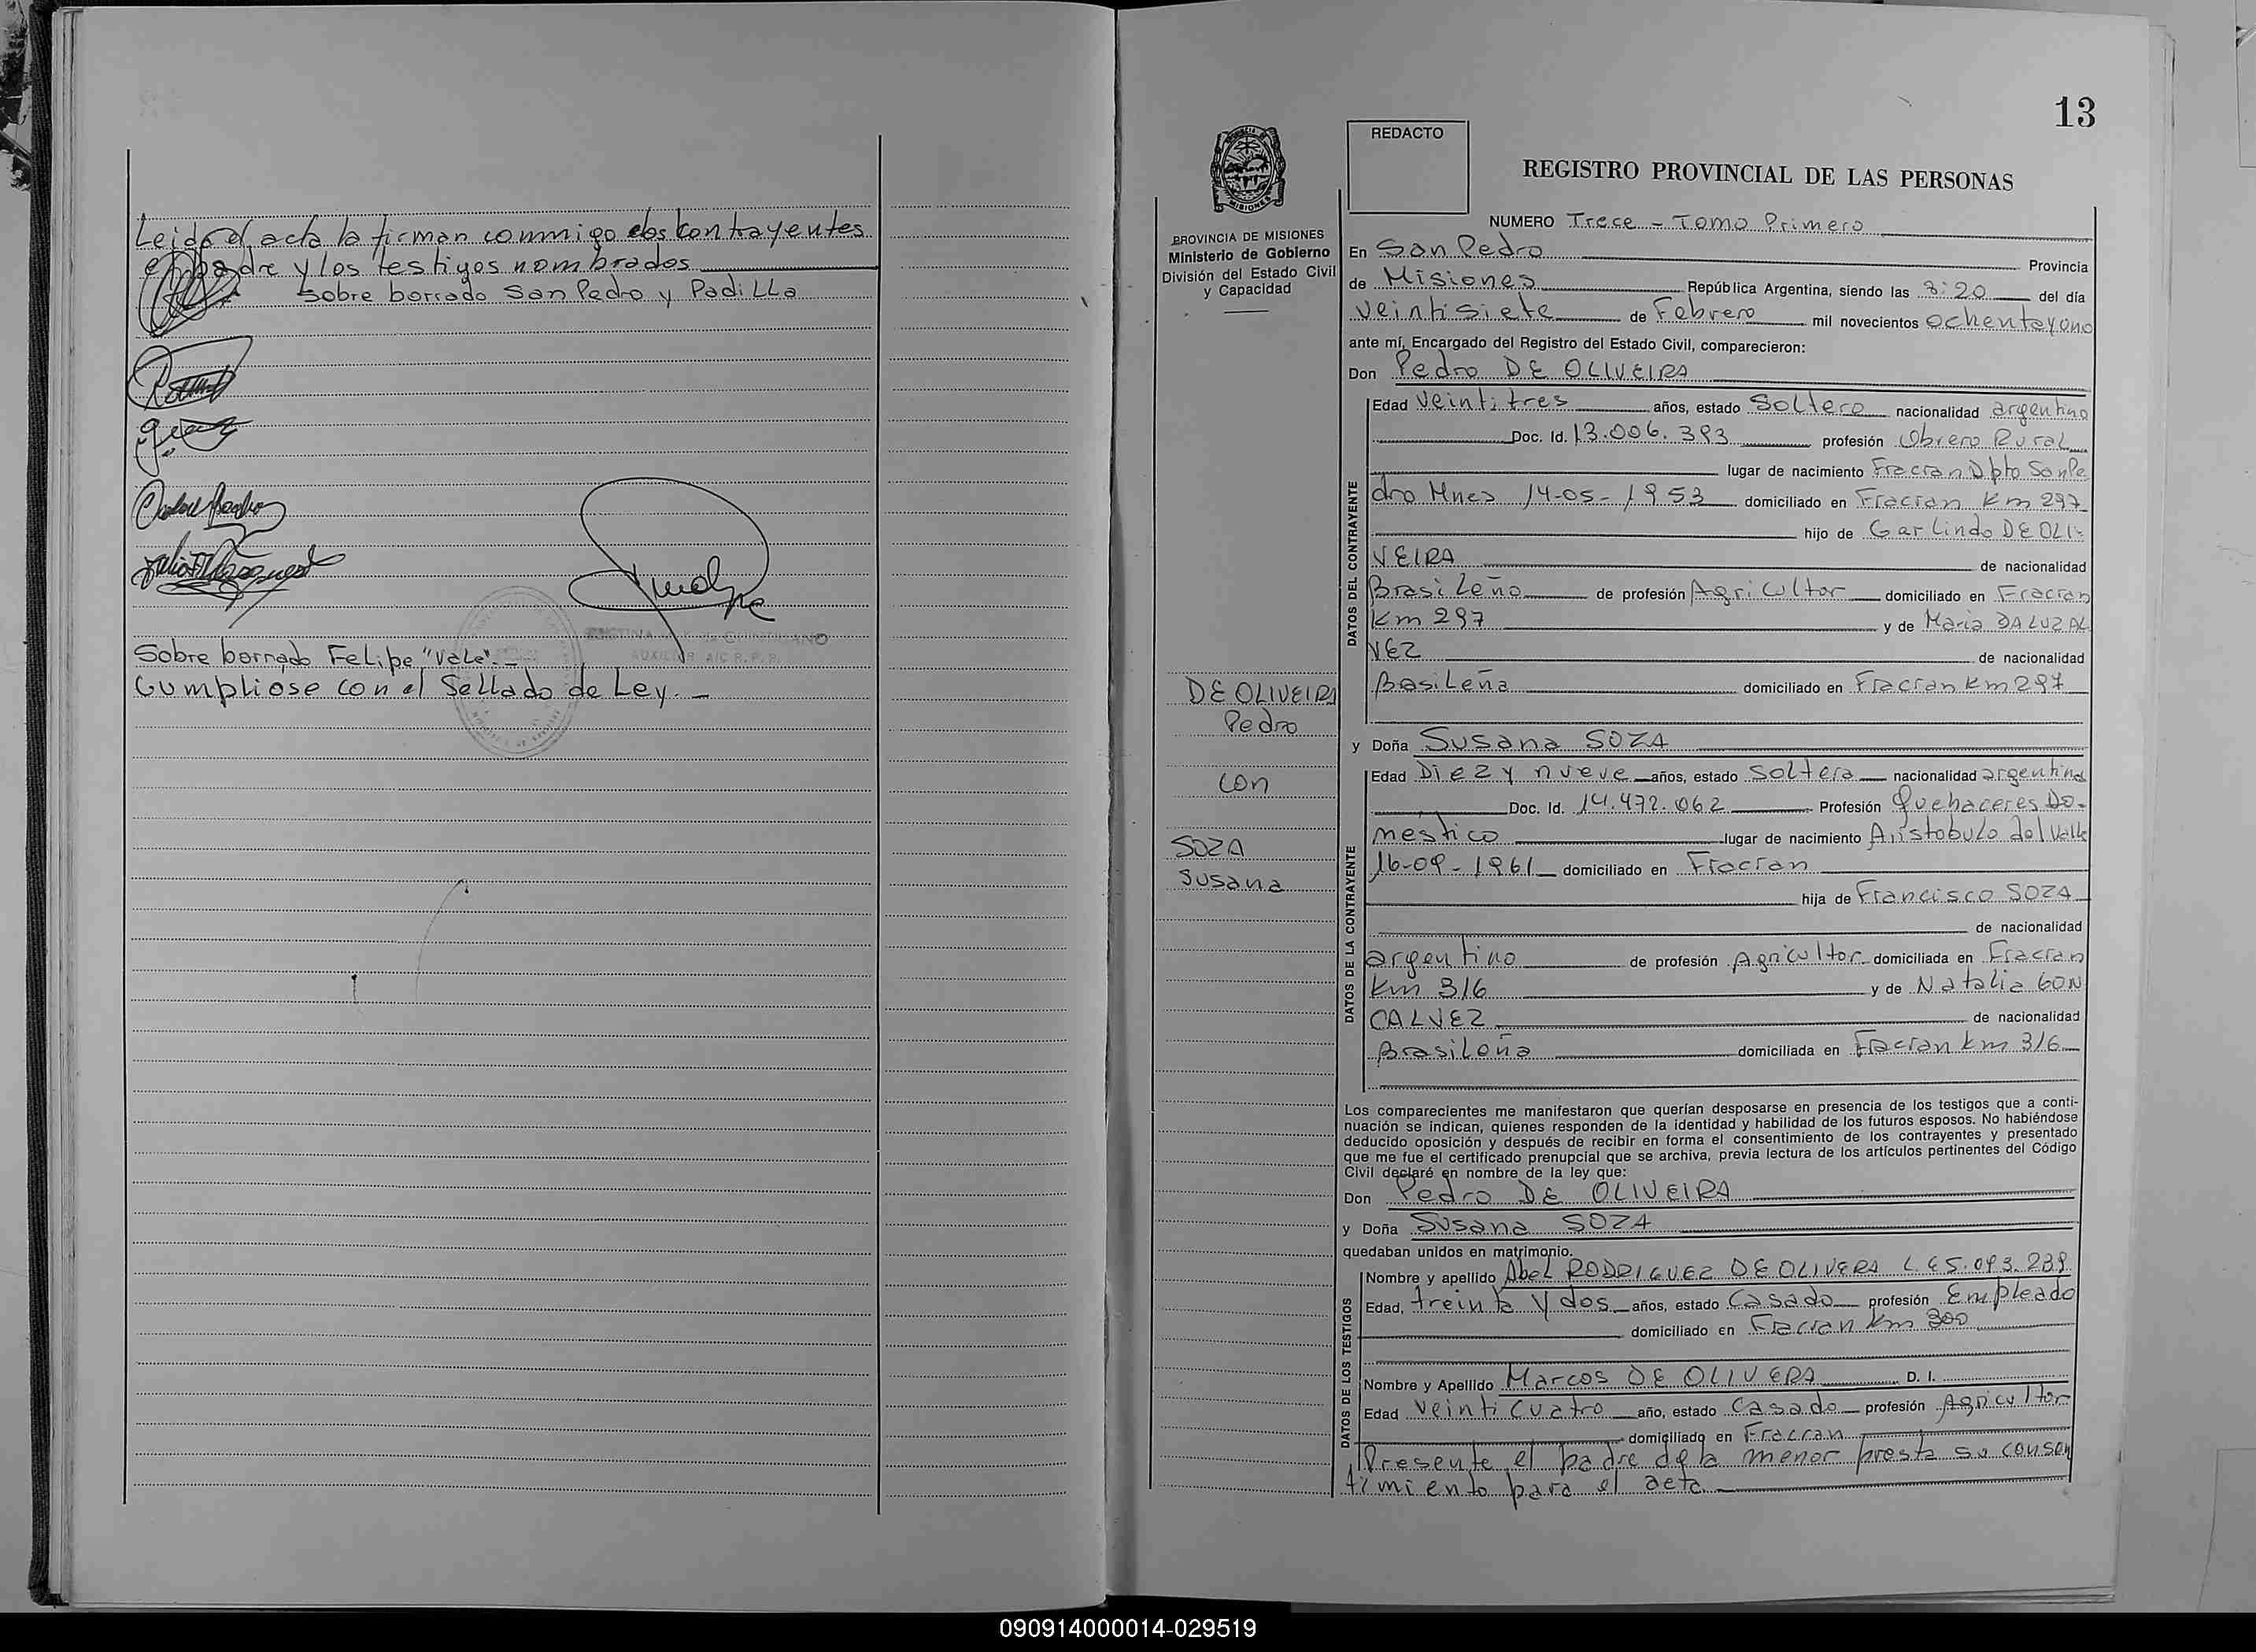 Leido el acta la firman commigo los contrayentes
el padre y los testigos nombrados
Sobre borrado San Pedro y Padilla
Sobre borrado Felipe "Vale".-
Cumpliose con el Sellado de Ley. -
13
REDACTO
REGISTRO PROVINCIAL DE LAS PERSONAS
MISIONES
PROVINCIA DE MISIONES
Ministerio de Gobierno
División del Estado Civil
y Capacidad
DE OLIVEIRA
Pedro
con
SOZA
Susana
NUMERO Trece - Tomo Primero
En San Pedro Provincia
de Misiones República Argentina, siendo las 8:20 del día
Veintisiete de Febrero mil novecientos ochentayuno
ante mí, Encargado del Registro del Estado Civil, comparecieron:
Don Pedro DE OLIVEIRA
DATOS DEL CONTRAYENTE
Edad Veintitres años, estado Soltero nacionalidad argentino
Doc. Id. 13.006.393 profesión Obrero Rural
lugar de nacimiento Fracran Dpto San Pe
dro Mnes 14-05-1953 domiciliado en Fracran Km 297
hijo de Garlindo DE OLI-
VEIRA de nacionalidad
Brasileño de profesión Agricultor domiciliado en Fracran
Km 297 y de Maria DA LUZ AL
VEZ de nacionalidad
Basileña domiciliado en Fracran Km 297
y Doña Susana SOZA
DATOS DE LA CONTRAYENTE
Edad Diez y nueve años, estado Soltera nacionalidad argentina
Doc. Id. 14.472.062 Profesión Quehaceres Do-
mestico lugar de nacimiento Aristobulo del Valle
16-09-1961 domiciliado en Fracran
hija de Francisco SOZA
de nacionalidad
argentino de profesión Agricultor domiciliada en Fracran
Km 316 y de Natalia GON
CALVEZ de nacionalidad
Brasileña domiciliada en Fracran Km 316
Los comparecientes me manifestaron que querían desposarse en presencia de los testigos que a conti-
nuación se indican, quienes responden de la identidad y habilidad de los futuros esposos. No habiéndose
deducido oposición y después de recibir en forma el consentimiento de los contrayentes y presentado
que me fue el certificado prenupcial que se archiva, previa lectura de los artículos pertinentes del Código
Civil declaré en nombre de la ley que:
Don Pedro DE OLIVEIRA
y Doña Susana SOZA
quedaban unidos en matrimonio.
DATOS DE LOS TESTIGOS
Nombre y apellido Abel RODRIGUEZ DE OLIVERA L.E 5.093.239
Edad, treinta y dos años, estado Casado profesión Empleado
domiciliado en Fracran Km 300
Nombre y Apellido Marcos DE OLIVERA D. I.
Edad Veinticuatro año, estado Casado profesión Agricultor
domiciliado en Fracran
Presente el padre de la menor presta su consen
timiento para el acta
090914000014-029519